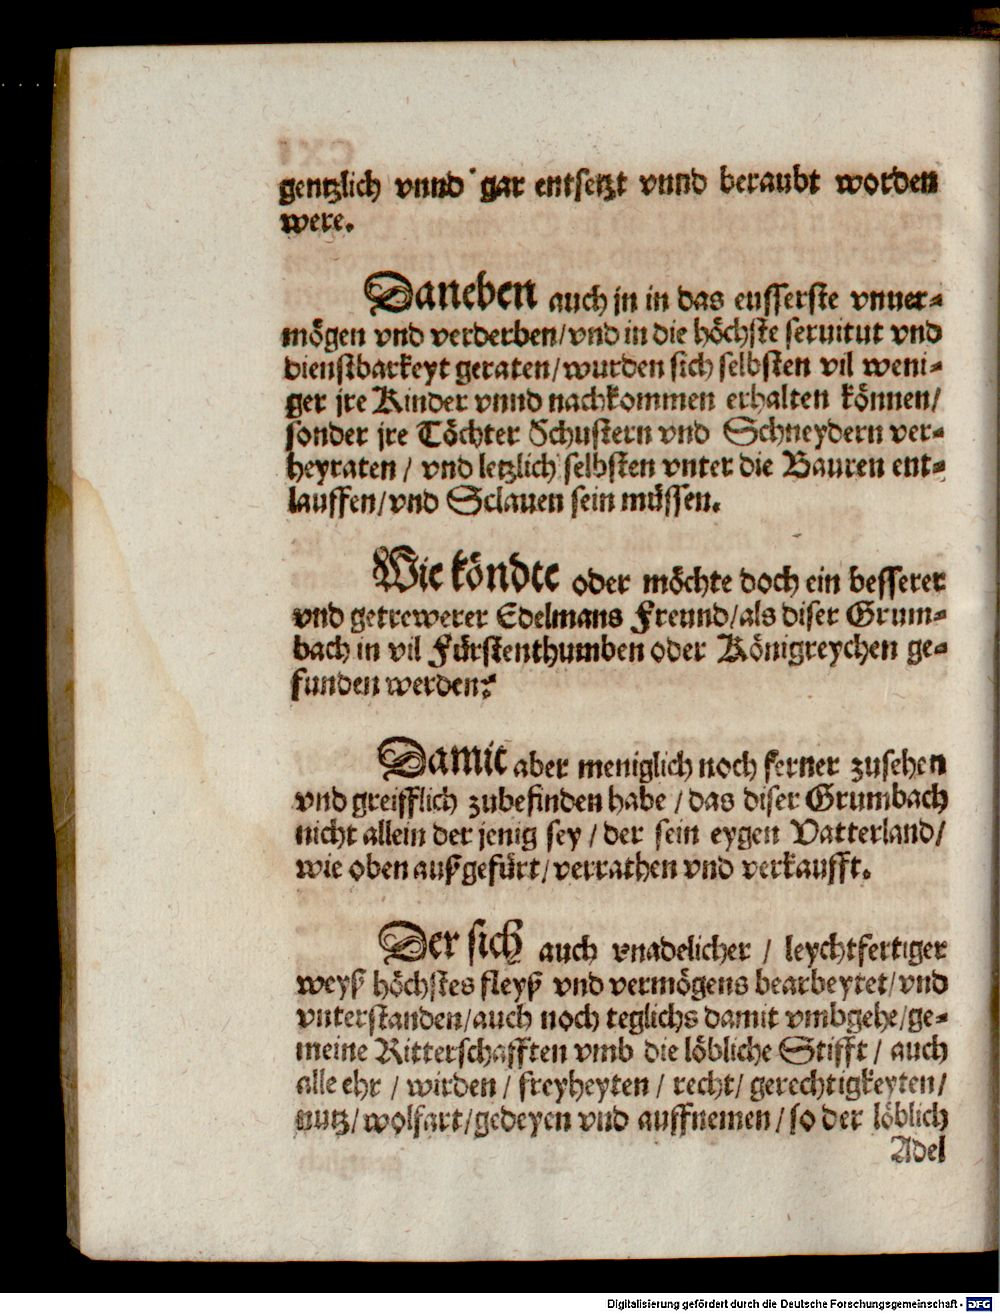 gentzlich vnnd gar entsetzt vnnd beraubt worden
were.
Daneben auch jn in das eusserste vnuer-
mögen vnd verderben/vnd in die höchste seruitut vnd
dienstbarkeyt geraten/wurden sich selbsten vil weni-
ger jre Kinder vnnd nachkommen erhalten können/
sonder jre Töchter Schustern vnd Schneydern ver-
heyraten / vnd letzlich selbsten vnter die Bauren ent-
lauffen/vnd Sclauen sein müssen.
Wie köndte oder möchte doch ein besserer
vnd getrewerer Edelmans Freund/als diser Grum-
bach in vil Fürstenthumben oder Königreychen ge-
funden werden?
Damit aber meniglich noch ferner zusehen
vnd greifflich zubefinden habe / das diser Grumbach
nicht allein der jenig sey / der sein eygen Vatterland/
wie oben außgefürt/verrathen vnd verkaufft.
Der sich auch vnadelicher / leychtfertiger
weyß höchstes fleyß vnd vermögens bearbeytet/vnd
vnterstanden/auch noch teglichs damit vmbgehe/ge-
meine Ritterschafften vmb die löbliche Stifft / auch
alle ehr / wirden / freyheyten / recht/ gerechtigkeyten/
nutz/wolfart/gedeyen vnd auffnemen / so der löblich
Adel
Digitalisierung gefördert durch die Deutsche Forschungsgemeinschaft - DFG